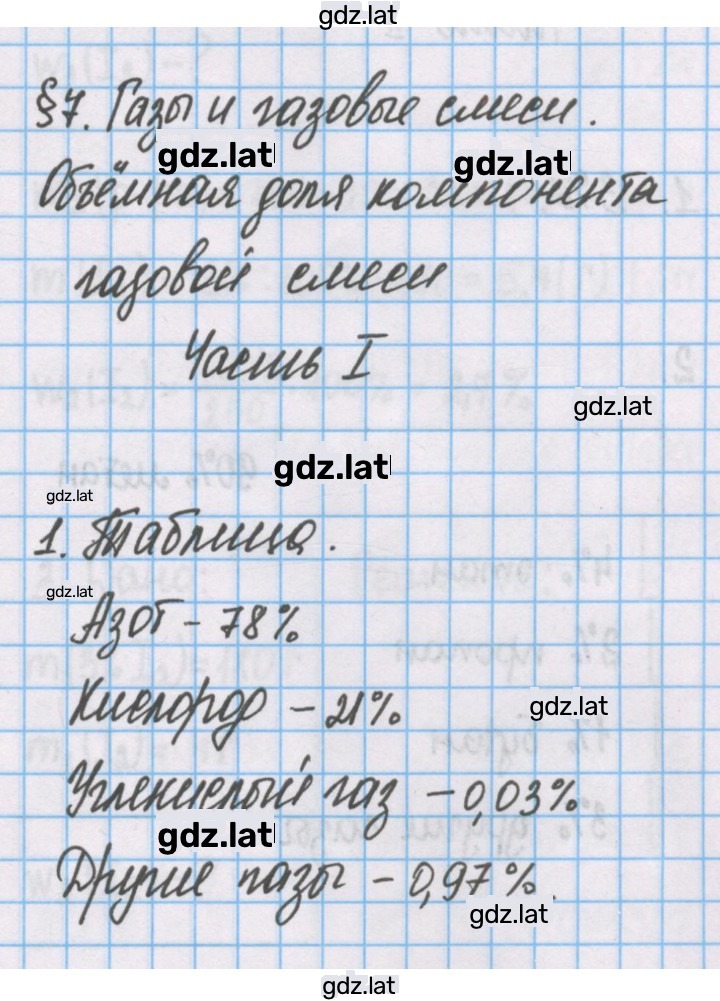 gdz.lat
§7. Газы и газовые смеси.
gdz.lat
gdz.lat
Объёмная доля компонента
газовой смеси
Часть I
gdz.lat
gdz.lat
gdz.lat
1. Таблица.
gdz.lat
Азот - 78%
Кислород - 21%
gdz.lat
Углекислый газ - 0,03%
gdz.lat
Другие газы - 0,97%
gdz.lat
gdz.lat